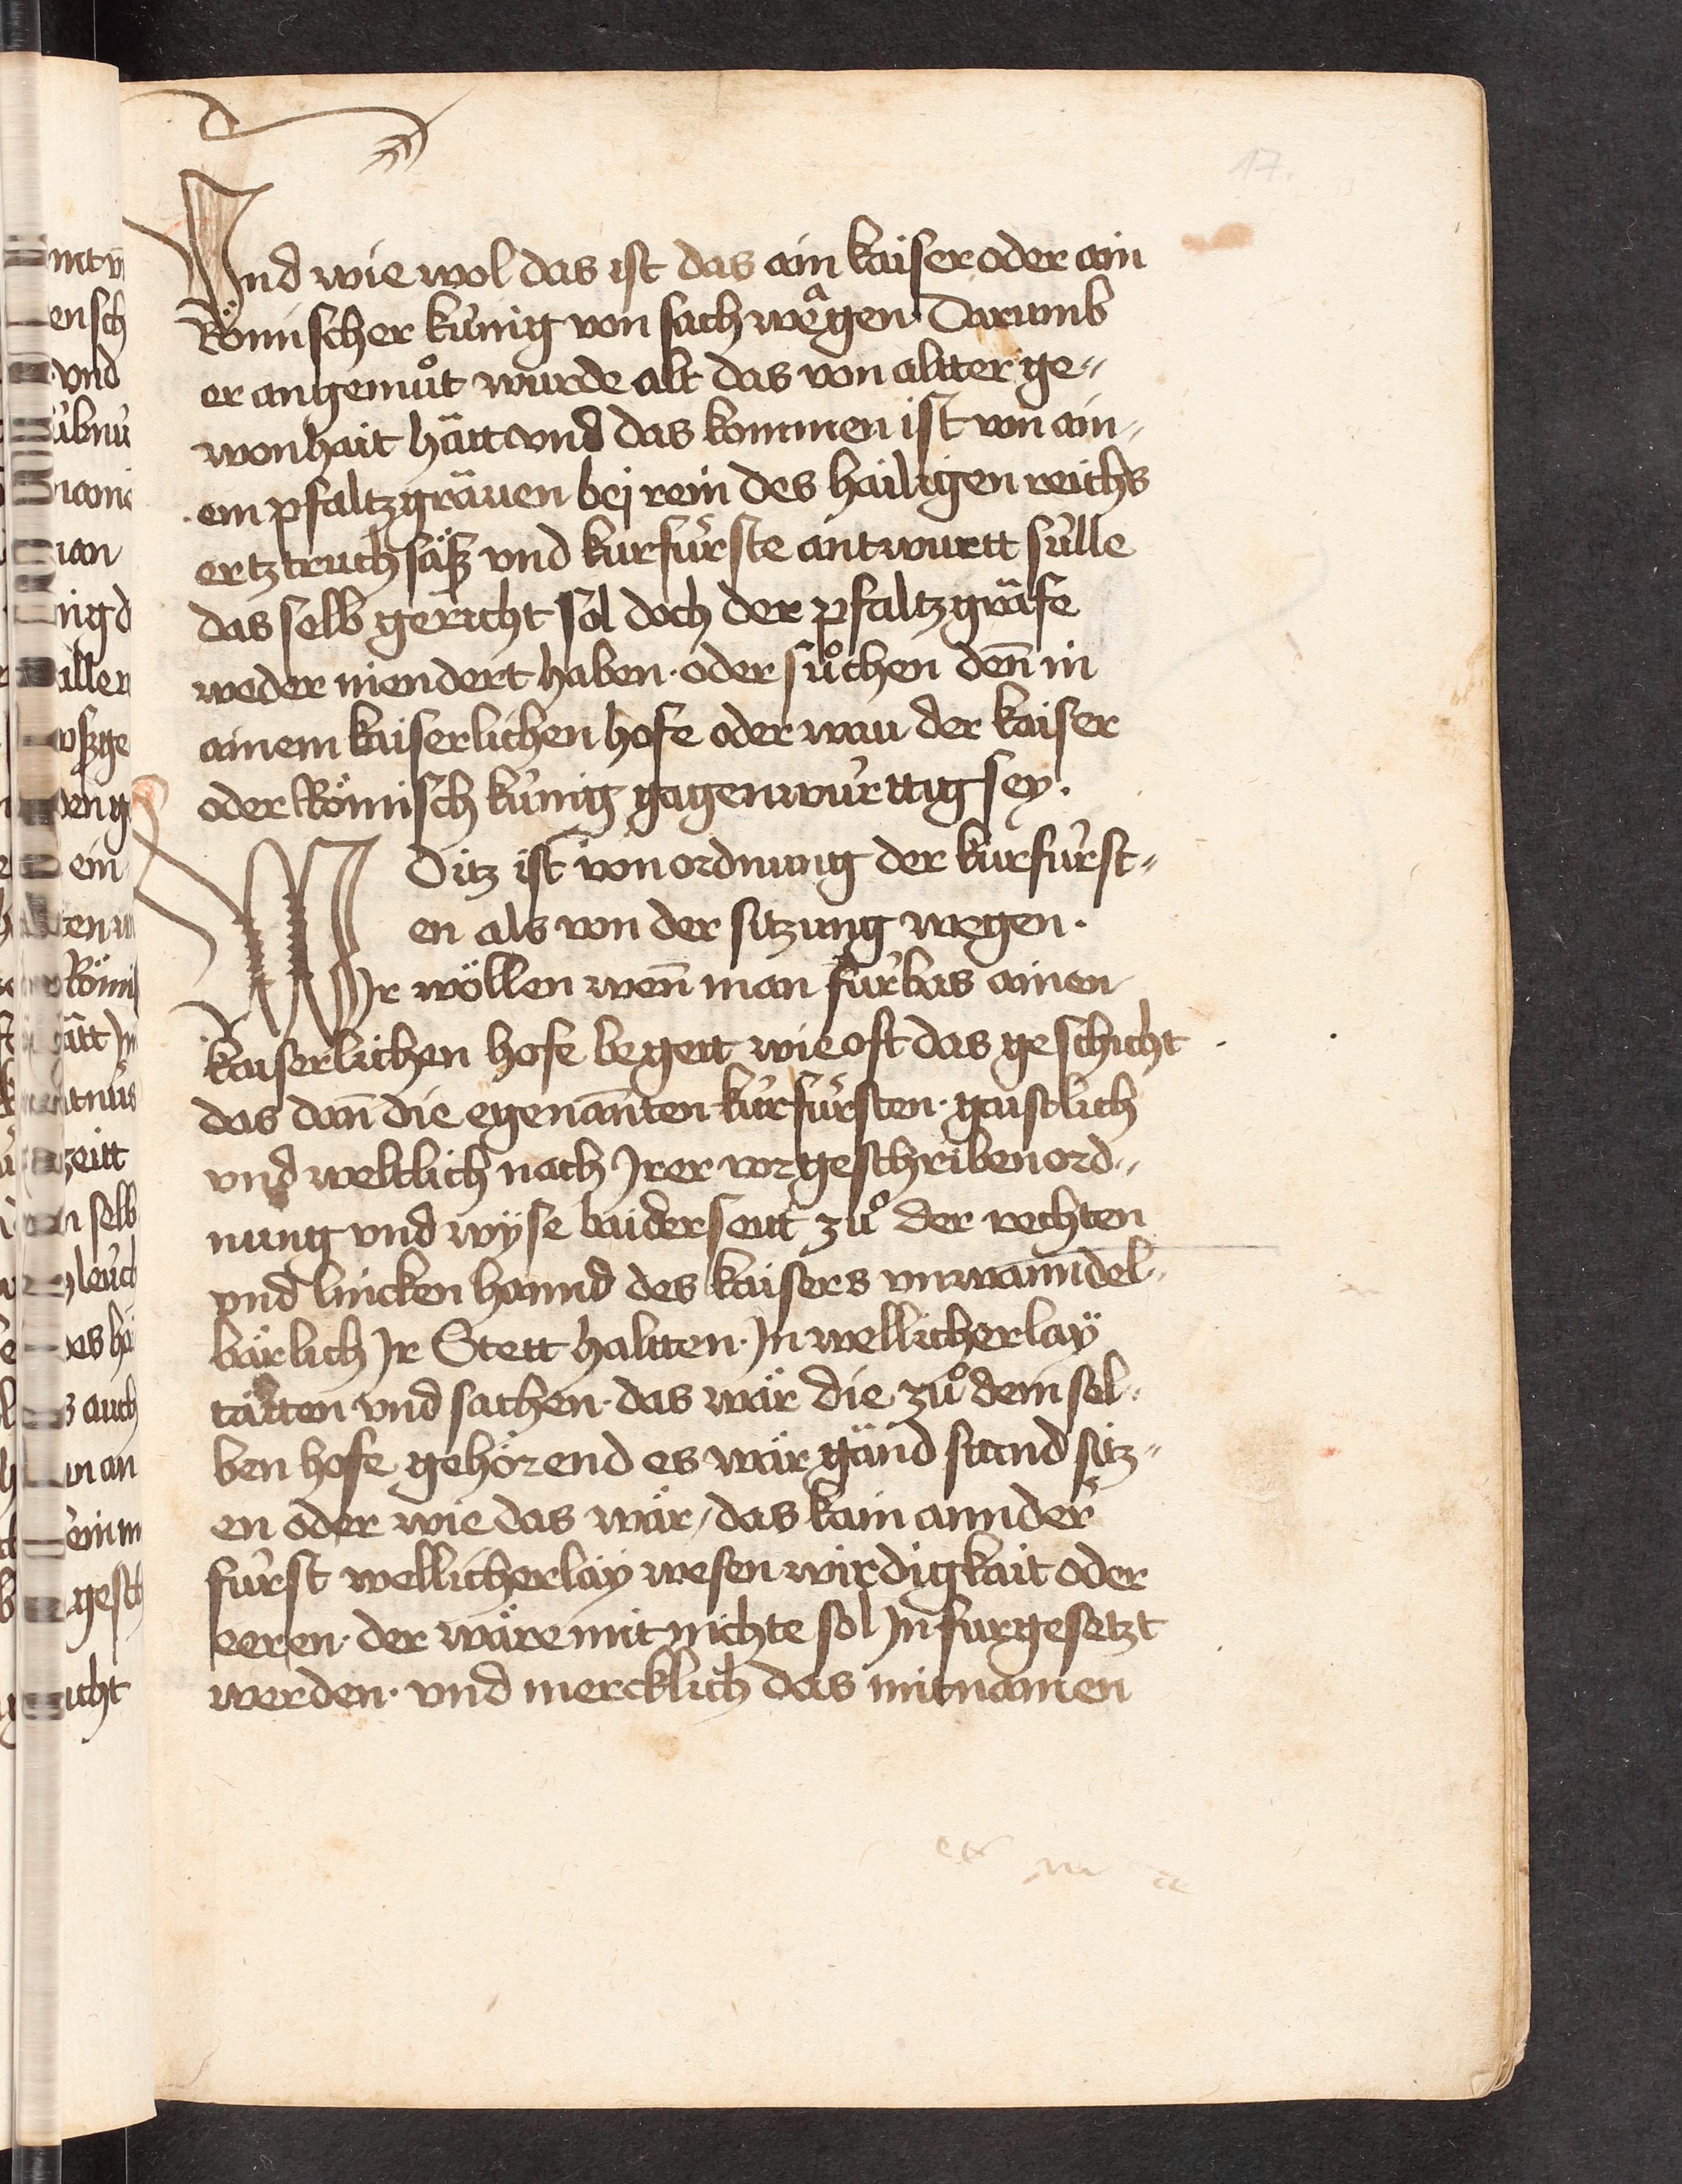 17.
Vnd wie wol das ist das ain kaiser oder ain
Römischer kúnig von sach wegen Darumb
er angemuͦt wurde alt das von altter ge⸗
wonhait hätt vnd das kommen ist von ain⸗
em pfaltzgräuen bej rein des hailigen reichs
ertztruchsäß vnd kurfúrste antwurtt súlle
das selb gericht sol doch der pfaltzgräfe
weder niendert haben· oder suͦchen den̄ in
ainem kaiserlichen hofe oder wau der kaiser
oder Römisch kúnig gagenwúrttig sey·
Ditz ist von ordnung der kurfúrst⸗
en als von der sitzung wegen·
WIr wöllen wen̄ man fúrbas ainen
kaiserlichen hofe begert wie oft das geschicht
das dan̄ die egenan̄ten kurfúrsten· gaistlich
vnd weltlich nach Irer vorgeschriben ord⸗
nung vnd wÿse baiderseitt zuͦ der rechten
vnd lincken hannd des kaisers vnwanndel⸗
bärlich Ir Stett haltten· In wellicherlaÿ
tätten vnd sachen· das wär die zuͦ dem sel⸗
ben hofe gehörend es wär gänd stand sitz⸗
en oder wie das wär/ das kain annder
fúrst wellicherlaÿ wesen wirdigkait oder
eeren· der wäre mit nichte sol In furgesetzt
werden· vnd mercklich das mit namen